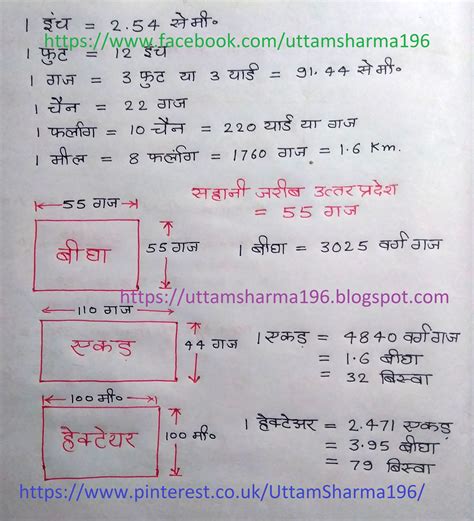 1 इंच = 2.54 से मी॰
https://www.facebook.com/uttamsharma196
1 फुट = 12 इंच
1 गज = 3 फुट या 3 यार्ड = 91.44 से मी॰
1 चैन = 22 गज
1 फर्लांग = 10 चैन = 220 यार्ड या गज
1 मील = 8 फर्लांग = 1760 गज = 1.6 Km.
सहानी जरीब उत्तर प्रदेश
= 55 गज
55 गज
बीघा
55 गज
1 बीघा = 3025 वर्ग गज
https://uttamsharma196.blogspot.com
110 गज
एकड़
44 गज
1 एकड़ = 4840 वर्ग गज
= 1.6 बीघा
= 32 बिस्वा
100 मी॰
हेक्टेयर
100 मी॰
1 हेक्टेअर = 2.471 एकड़
= 3.95 बीघा
= 79 बिस्वा
https://www.pinterest.co.uk/UttamSharma196/